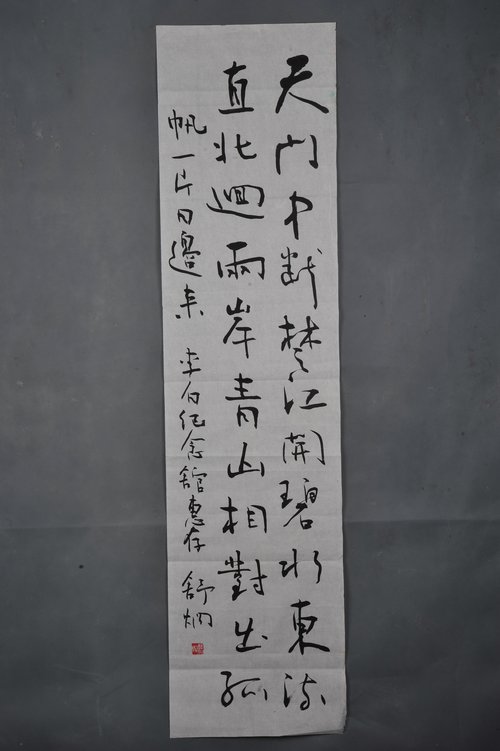 天门中断楚江開碧水東流
直北迴兩岸青山相對出孤
帆一片日邊来 李白纪念館惠存 舒炯